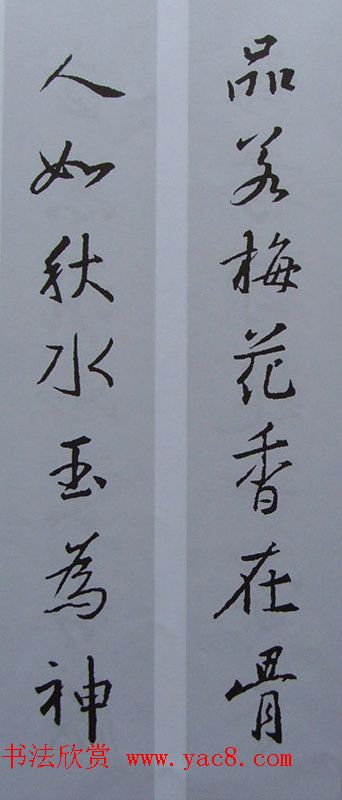 品若梅花香在骨
人如秋水玉為神
书法欣赏 www.yac8.com